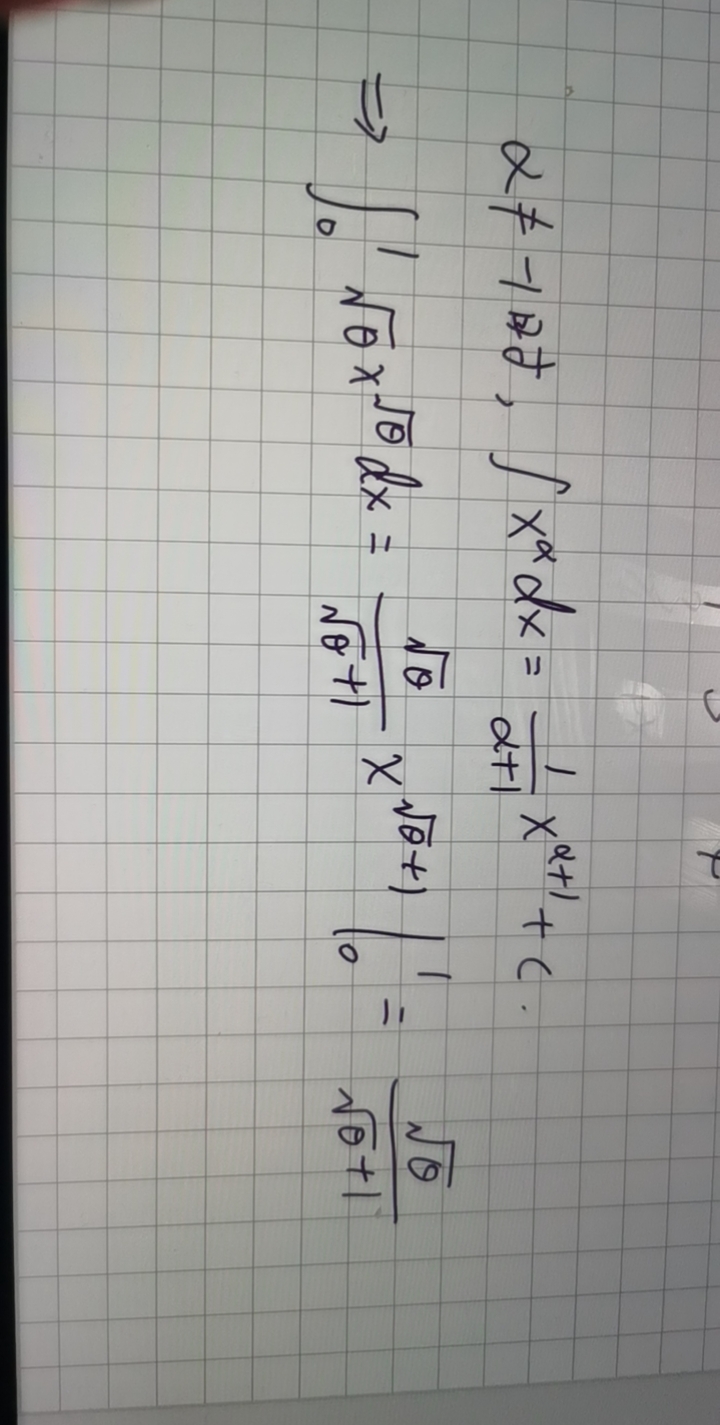 α ≠ -1 时, ∫ x^α dx = \frac{1}{α+1} x^{α+1} + C.
⇒ ∫_0^1 √θ x^{√θ} dx = \frac{√θ}{√θ+1} x^{√θ+1} |_0^1 = \frac{√θ}{√θ+1}